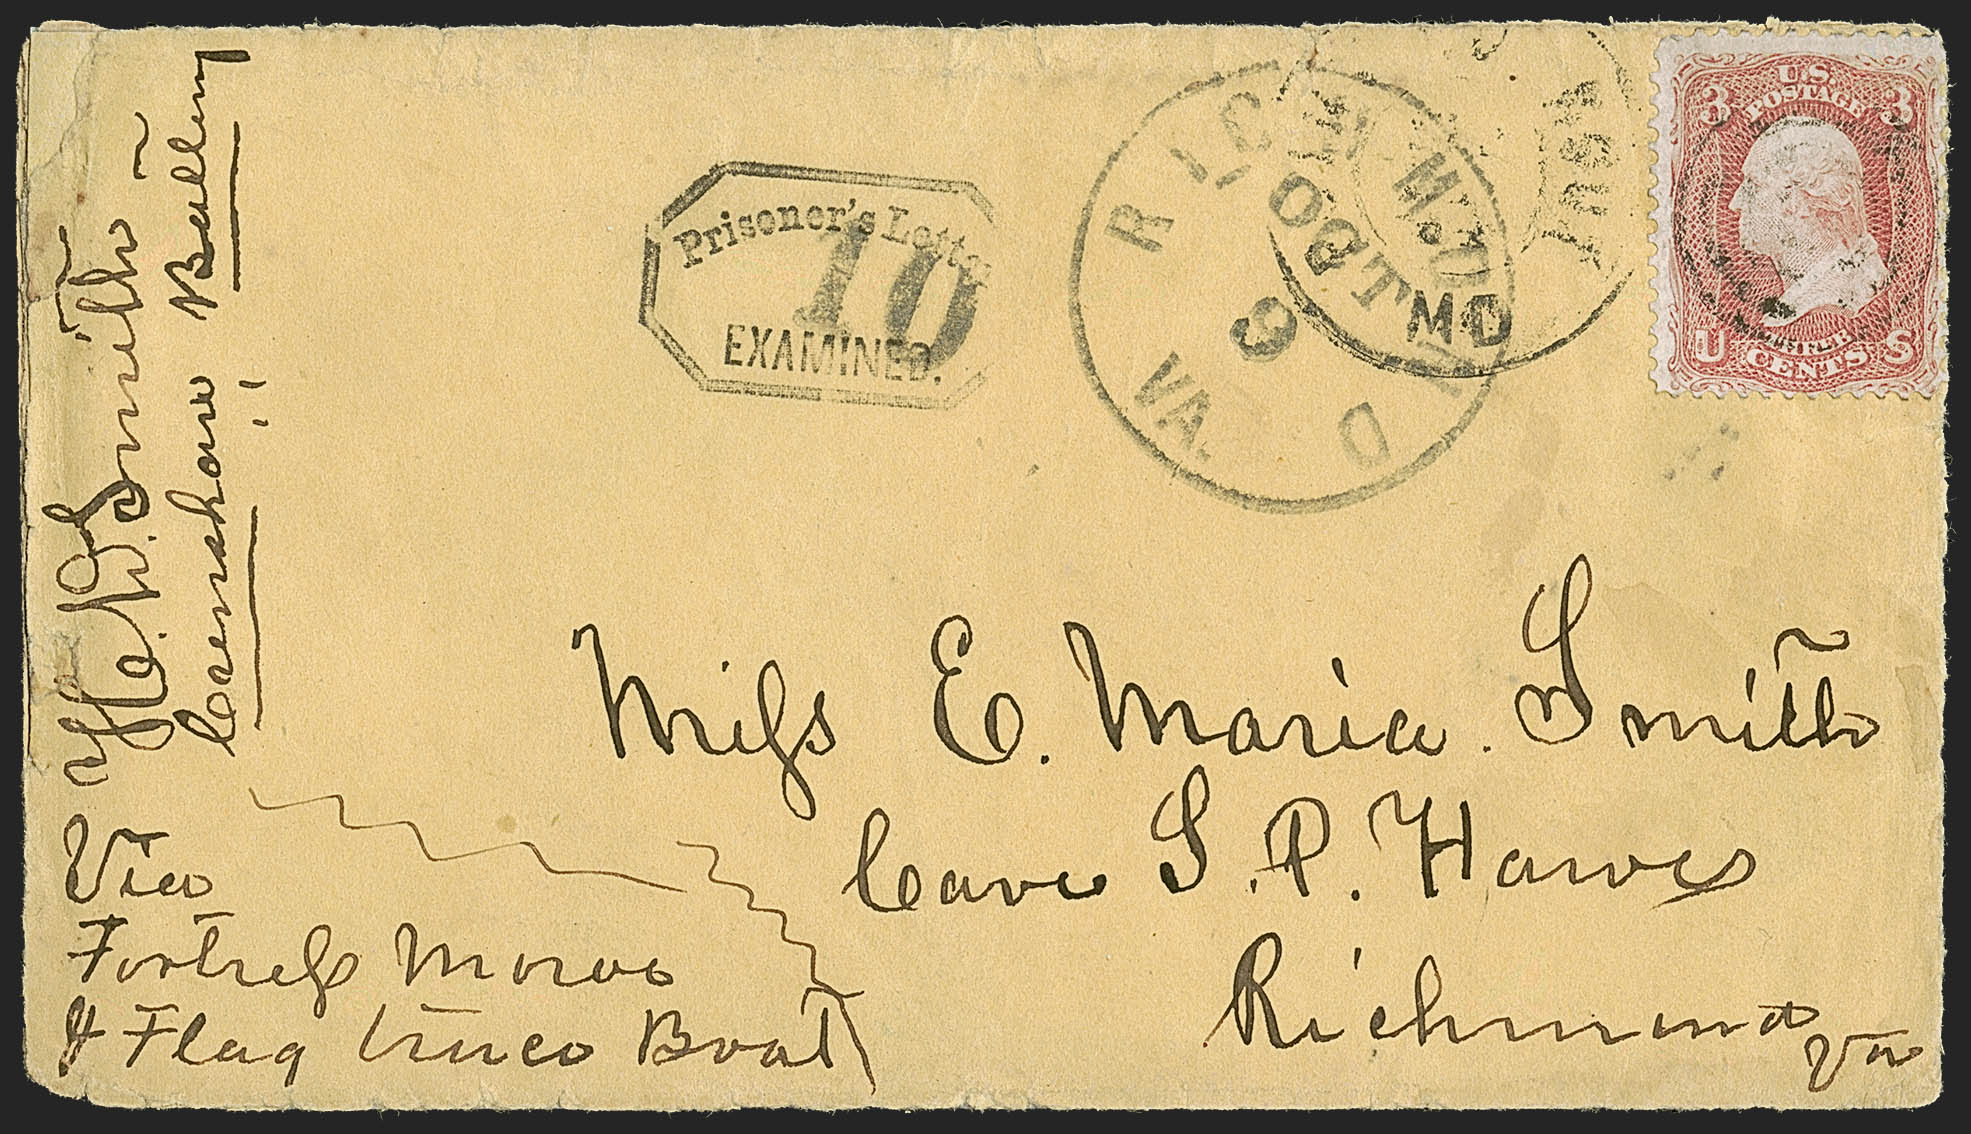 H. W. Smith
Crenshaw Battery
Prisoner's Letter
10
EXAMINED.
RICHMOND
OCT
9
VA.
POINT
MD
U.S.
POSTAGE
3 3
U S
CENTS
Miſs E. Maria. Smith
Care S. P. Hawes
Richmond
Va
Via
Fortreſs Monroe
& Flag truce Boat